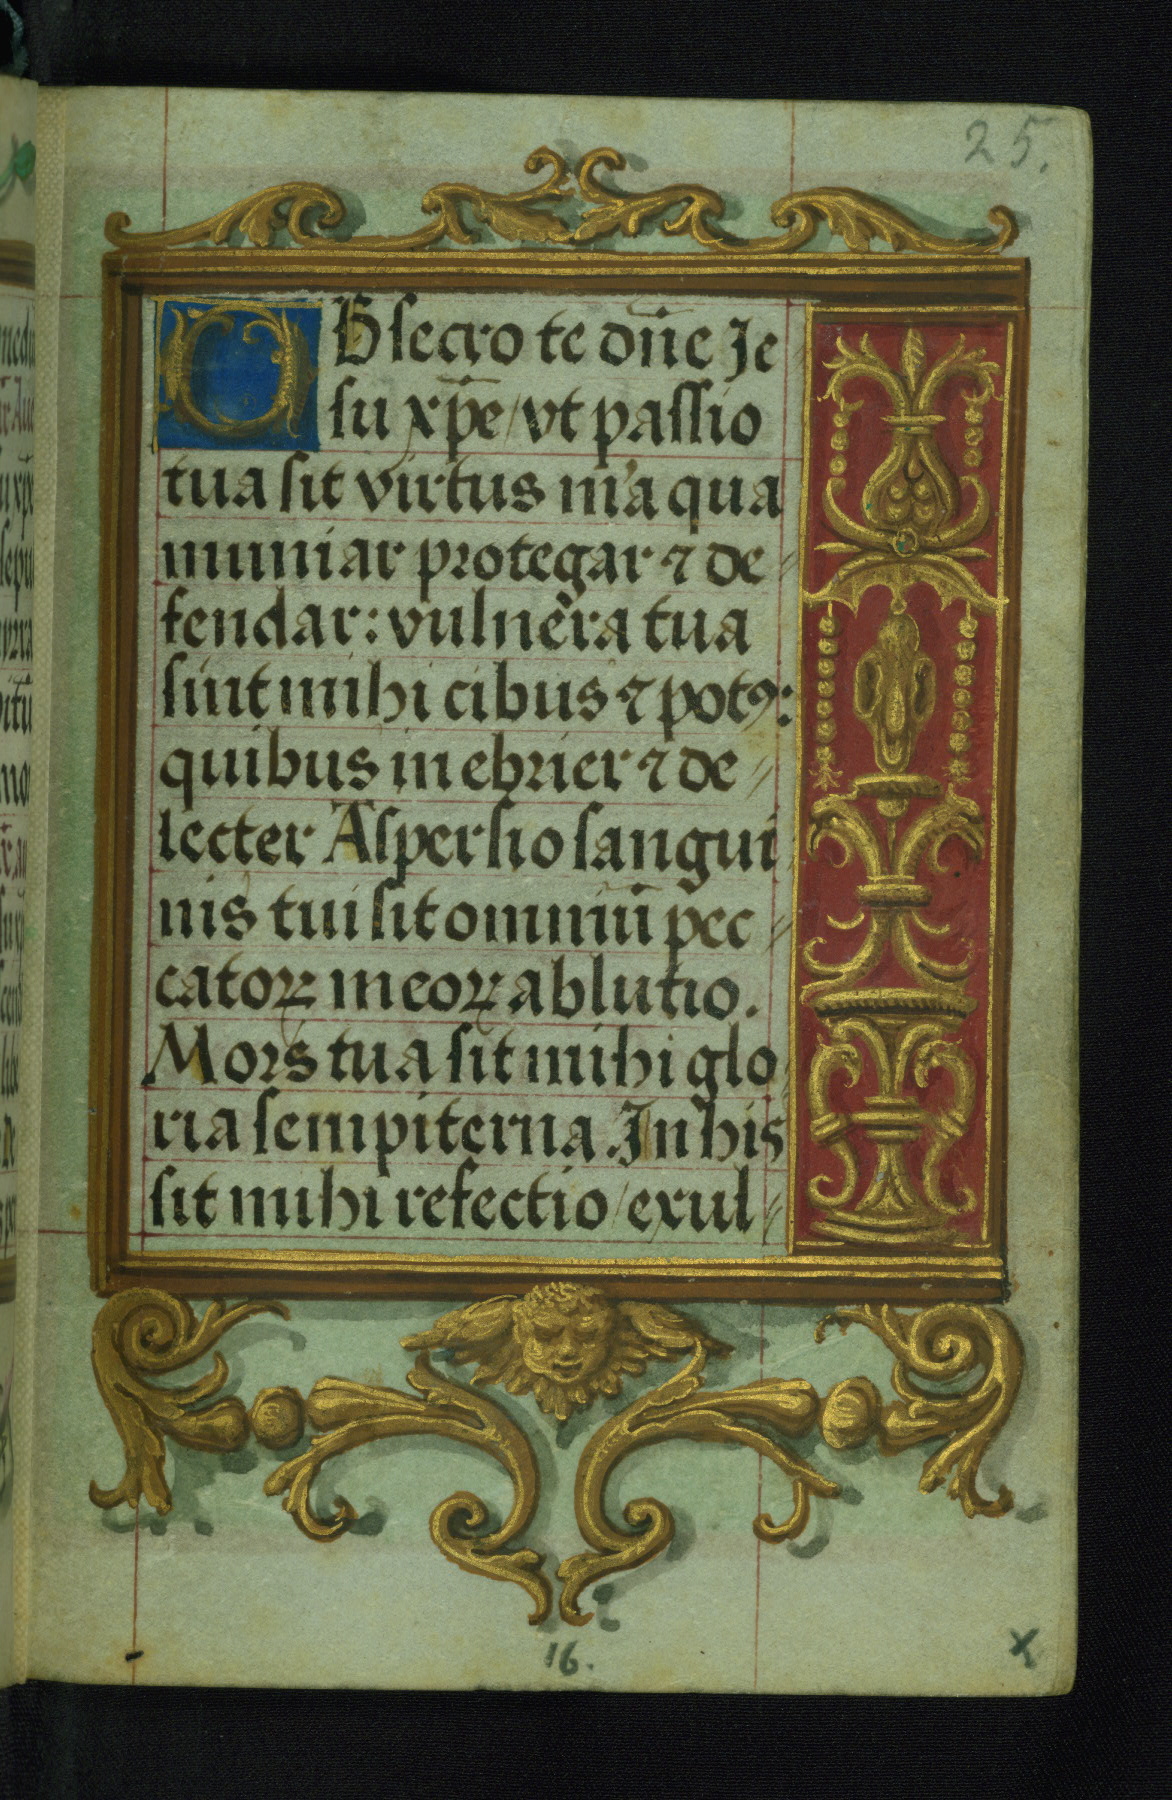 25.
OBsecro te dn̄e Je
su xp̄e / vt passio
tua sit virtus mʼa qua
muniar protegar ⁊ de〃
fendar: vulnera tua
sint mihi cibus ⁊ potꝯ:
quibus in ebrier ⁊ de〃
lecter Aspersio sangui
nis tui sit omniū pec〃
catoꝝ meoꝝ ablutio.
Mors tua sit mihi glo
ria sempiterna. In his
sit mihi refectio / exul〃
16.
x